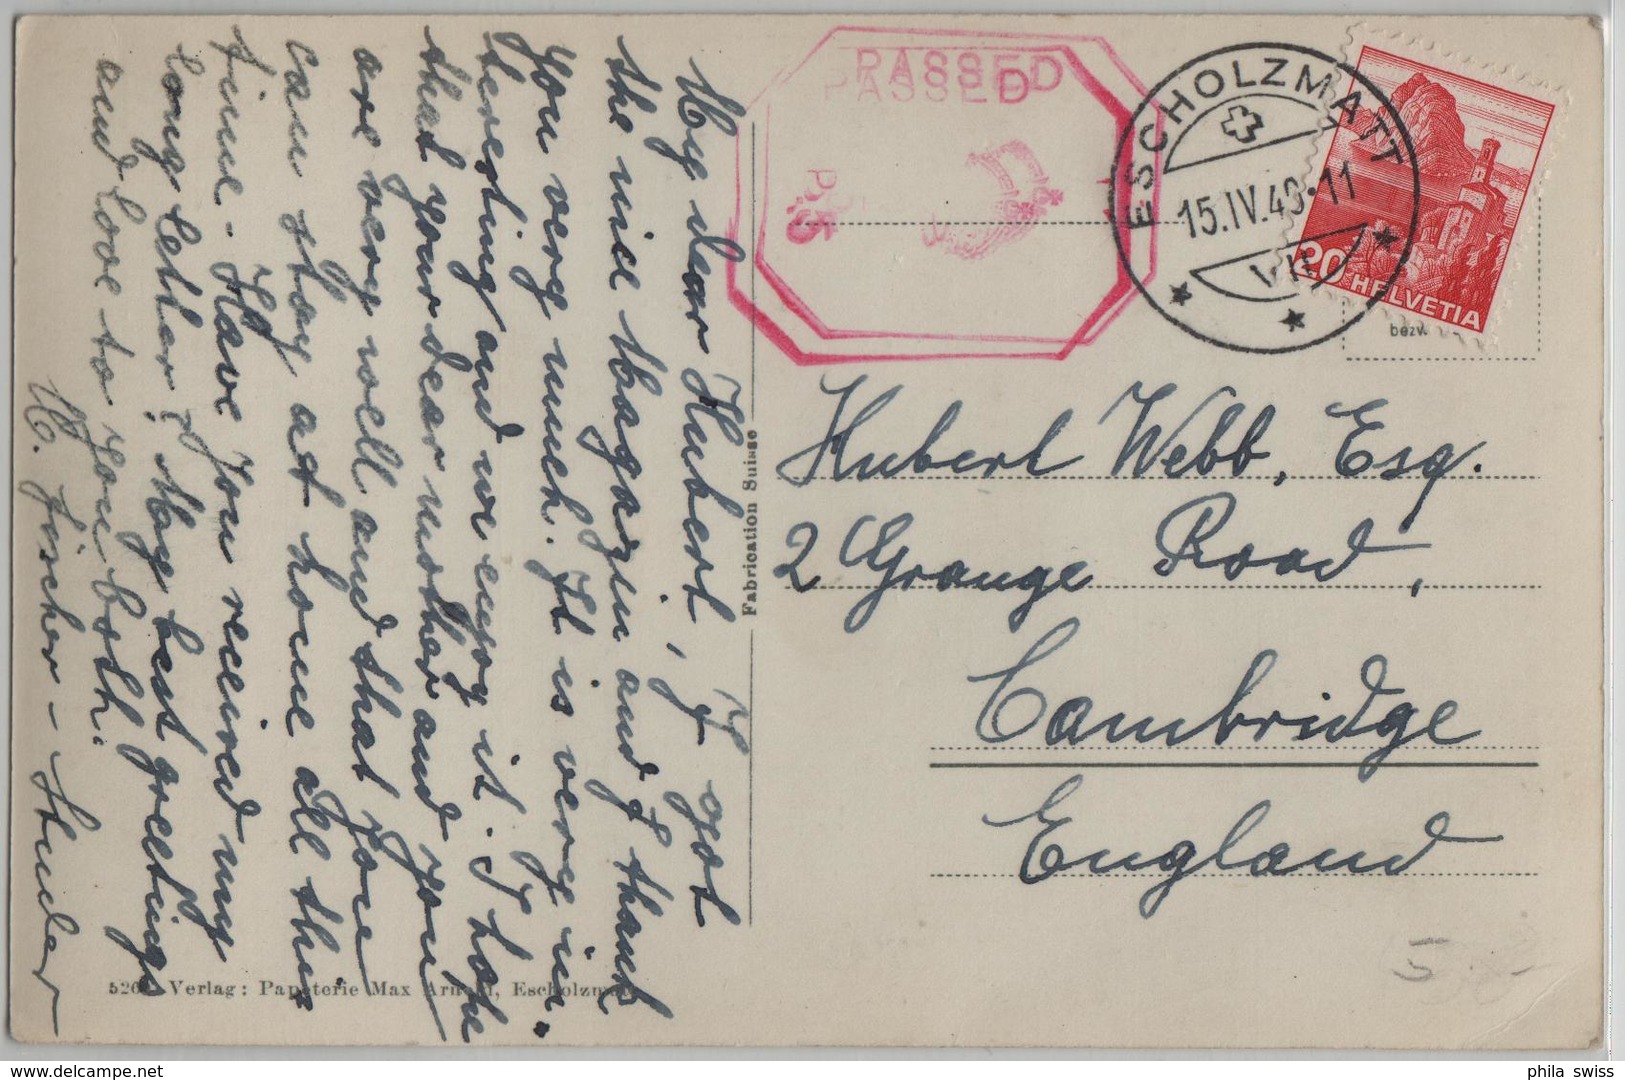 My dear Hubert, I got
the nice Magazin and I thank
you very much. It is very in-
teresting and we enjoy it. I hope
that your dear mother and you
are very well and that you
can stay at home all this
time - Have you received my
long letter? My best greetings
and love to you both.
M. Fischer - Studer
PASSED
PASSED
P.5
ESCHOLZMATT
15.IV.40-11
20 HELVETIA
bezw.
Fabrication Suisse
Hubert Webb, Esq.
2 Grange Road,
Cambridge
England
5
Verlag: Papeterie Max Arnold, Escholzmatt
phila swiss
delcampe.net